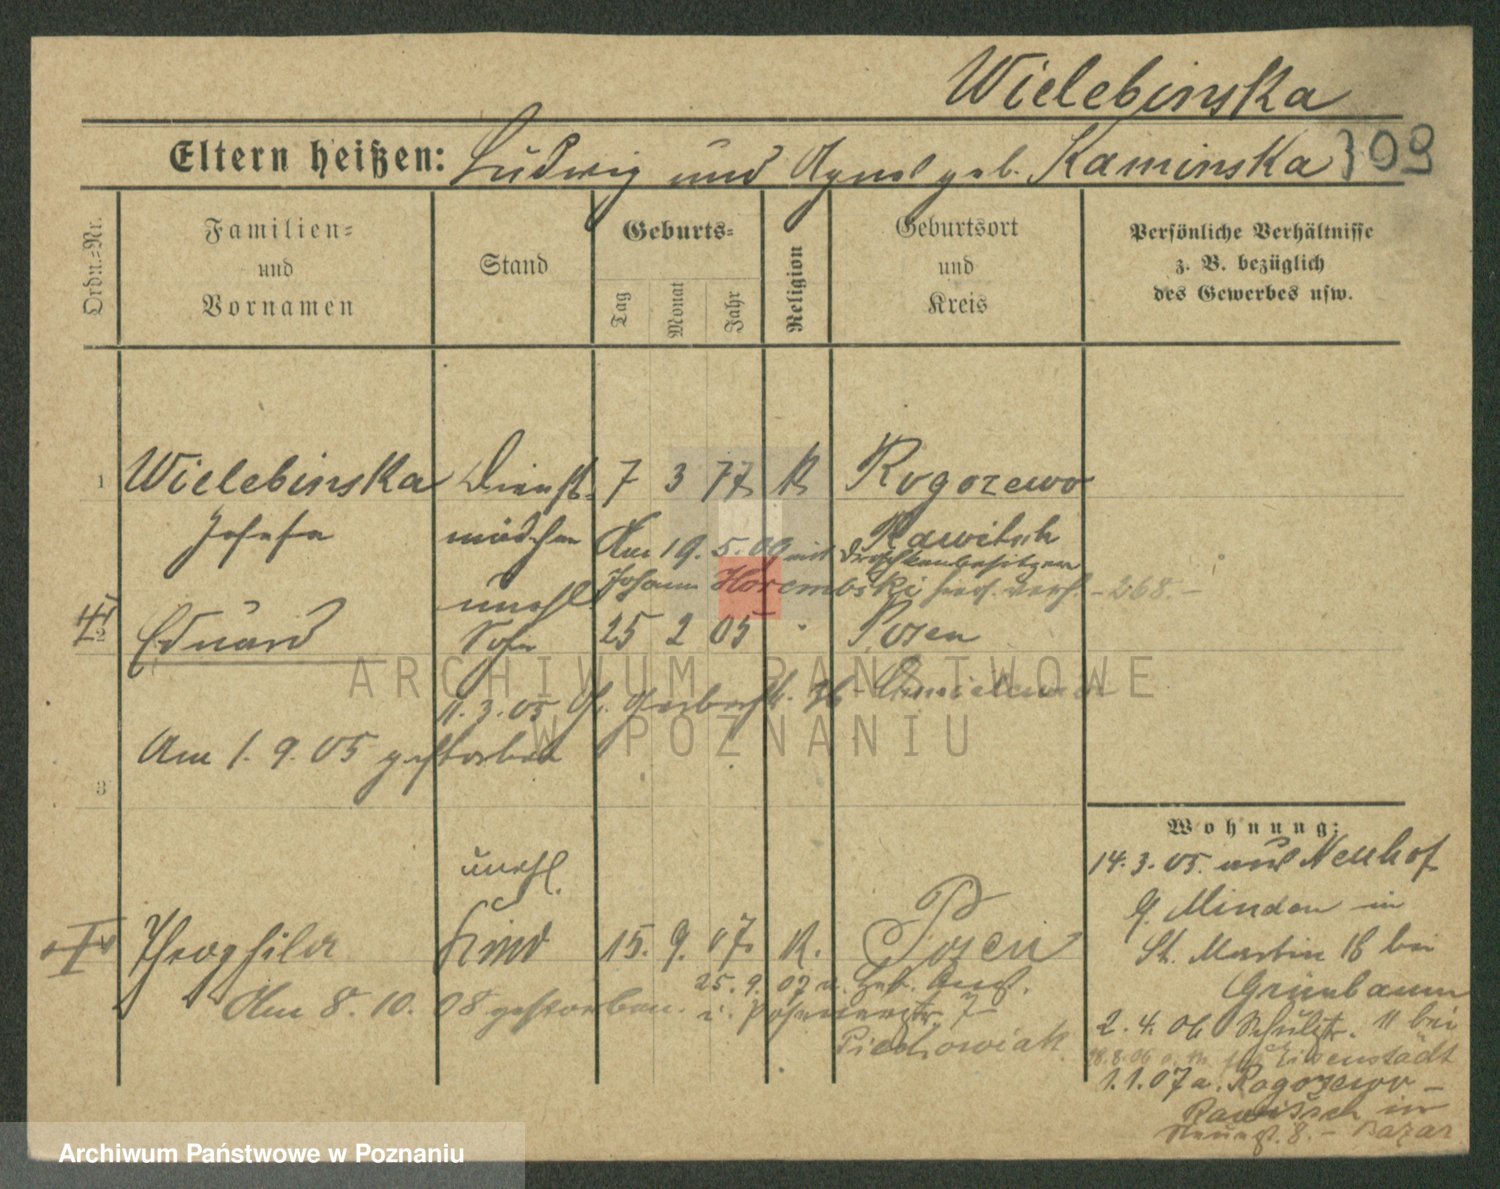 Wielebinska
Eltern heißen: Ludwig und Agnes geb. Kaminska
309
Ordn.-Nr.
Familien-
und
Vornamen
Stand
Geburts-
Tag
Monat
Jahr
Religion
Geburtsort
und
Kreis
Persönliche Verhältnisse
z. B. bezüglich
des Gewerbes usw.
1 Wielebinska Dienst- 7 3 77 K Rogozewo
Josefa mädchen Rawitsch
Am 19. 5. 09 mit Droschkenbesitzer
Johann Horembski verh. - 268. -
unehl.
2 Eduard Sohn 25 2 05 " Posen
11. 3. 05 Gr. Gerberstr. 36 Chmielewski
Am 1. 9. 05 gestorben
3
unehl.
Theophila Kind 15. 9. 07 K. Posen
Am 8. 10. 08 gestorben.
25. 9. 07 a. Geb. Anst.
i. Posenerstr. 7
Piechowiak
Wohnung:
14. 3. 05. aus Neuhof
Minden in
St. Martin 18 bei
Grünbaum
2. 4. 06 Schulstr. 11 bei
Eisenstädt
1. 1. 07 a. Rogozewo -
Rawitsch in
8. - Bazar
ARCHIWUM PAŃSTWOWE
W POZNANIU
Archiwum Państwowe w Poznaniu